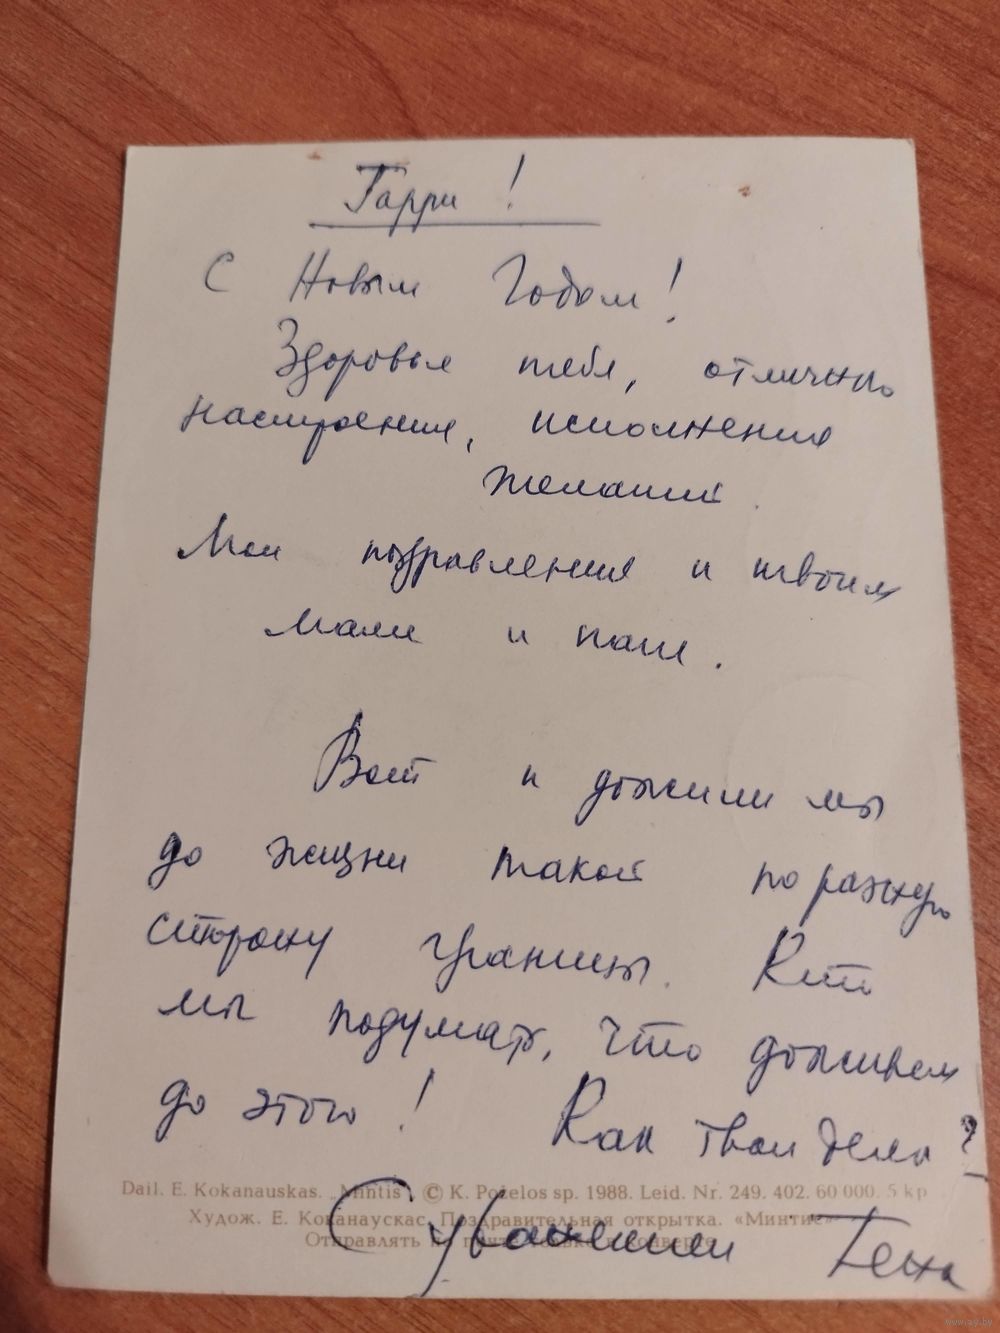 Гарри!
С Новым Годом!
Здоровья тебе, отличного
настроения, исполнения
желаний.
Мои поздравления и твоим
маме и папе.
Вот и дожили мы
до жизни такой по разную
сторону границы. Кто
мы подумать, что доживем
до этого! Как твои дела?
Dail. E. Kokanauskas. „Mintis“ © K. Poželos sp. 1988. Leid. Nr. 249. 402. 60 000. 5 kp
Худож. Е. Коканаускас. Поздравительная открытка. «Минтис»
Отправлять по почте только в конверте
С уважением Гена
www.ay.by